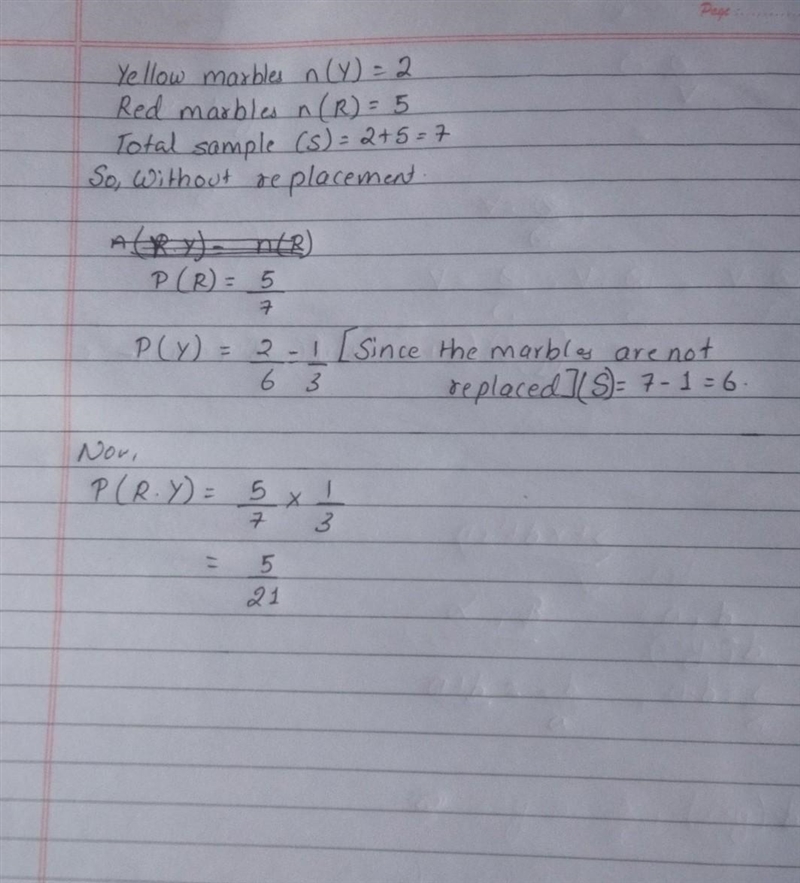 Page :..........
Yellow marbles n(Y) = 2
Red marbles n(R) = 5
Total sample (S) = 2+5=7
So, Without replacement.
A(R.Y) = n(R)
P(R) = 5/7
P(Y) = 2/6 = 1/3 [Since the marbles are not
replaced](S) = 7-1=6.
Nov,
P(R.Y) = 5/7 × 1/3
= 5/21